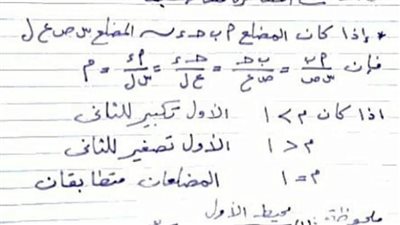 * إذا كان المضلع م ب حـ ء ~ المضلع س ص ع ل
فإن م ب / س ص = ب حـ / ص ع = حـ ء / ع ل = م ء / س ل = م
اذا كان م > ١ الأول تكبير للثانى
م < ١ الأول تصغير للثانى
م = ١ المضلعان متطابقان
ملحوظة محيط الأول